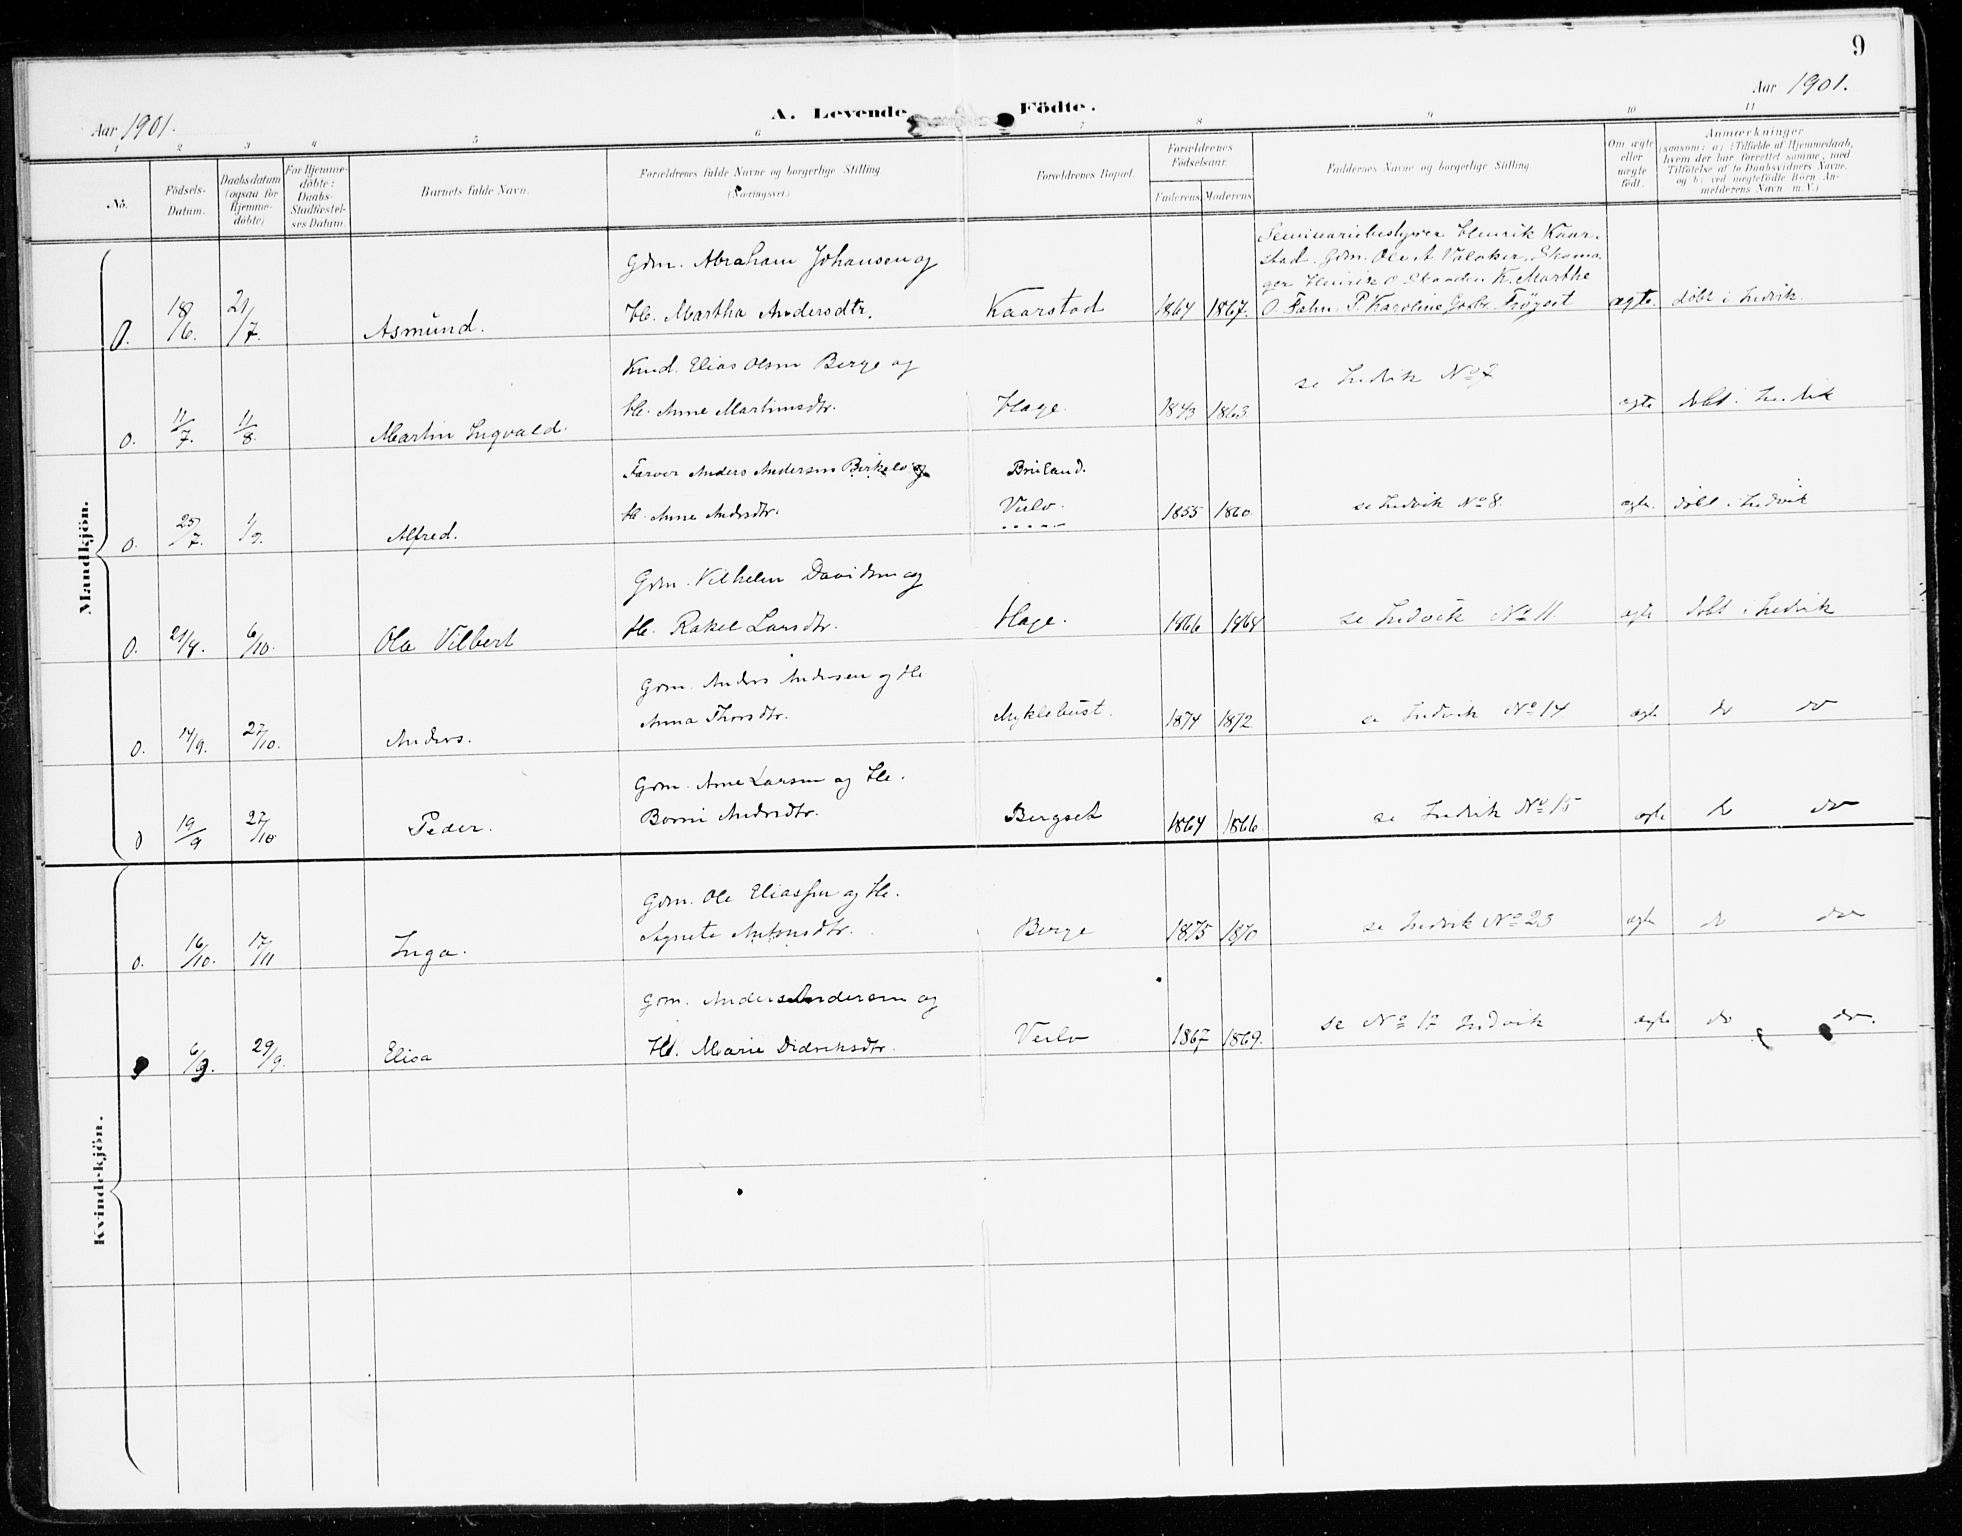 9
Aar 1901.
Aar 1901.
A. Levende Födte.
1 2 3 4 5 6 7 8 9 10 11
No.
Födsels-
Datum.
Daabsdatum
(ogsaa for
Hjemme-
döbte)
For Hjemme-
döbte:
Daabs-
Stadfæstel-
ses Datum.
Barnets fulde Navn.
Forældrenes fulde Navne og borgerlige Stilling
(Næringsvei.)
Forældrenes Bopæl.
Forældrenes
Födselsaar.
Faderens Moderens
Faddernes Navne og borgerlige Stilling.
Om ægte
eller
uægte
födt.
Anmærkninger
(saasom: a) i Tilfælde af Hjemmedaab,
hvem der har forrettet samme, med
Tilföielse af to Daabsvidners Navne,
og b) ved uægtefödte Börn An-
melderens Navn m. V.)
Mandkjön.
0. 18/6. 21/7. Asmund.
Gdm. Abraham Johansen og
H. Martha Andersdtr. Kaarstad 1864 1867.
Seminariebestyrer Henrik Kaar-
stad. Gdm. Ole A
Henrik K. Marthe
O. P. Karoline
ægte. döbt i Indvik.
0. 11/7. 11/8. Martin Ingvald.
Kmd. Elias Olsen Berge og
H. Anne Martinusdtr. Hage. 1843 1863. se Indvik No 7 ægte döbt i Indvik
0. 25/7. 1/9. Alfred.
Farver Anders Andersen Birkelv og
H. Anne Andersdtr.
Bruland.
1855 1860. se Indvik No 8. ægte. döbt i Indvik
0. 21/8. 6/10. Ola Vilbert
Gdm. Vilhelm Davidsen og
H. Rakel Larsdtr. Hage. 1866 1868 se Indvik No 11. ægte döbt i Indvik
0. 14/9. 27/10. Anders.
Gdm. Anders Andersen og H
Anna Thorsdtr. Myklebust. 1874 1872 se Indvik No 14 ægte do do
0 19/9 27/10 Peder.
Gdm. Arne Larsen og H.
Andersdtr. Bergset 1864 1866. se Indvik No 15 ægte do do
Kvindekjön.
0. 16/10. 17/11 Inga.
Gdm. Ole Eliassen og H.
Agnete Antonsdtr. Berge 1875 1870 se Indvik No 23 ægte do do
6/9. 29/9. Elisa
Gdm. Anders Andersen og
H. Marie Didriksdtr. 1867 1869. se No 17 Indvik ægte do do.